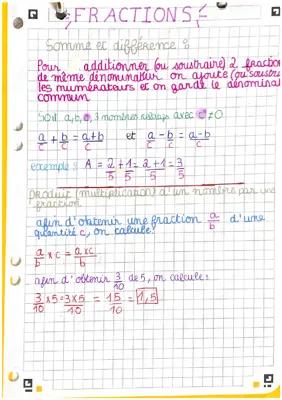 FRACTIONS
Somme et différence :
Pour additionner (ou soustraire) 2 fraction
de même dénominateur on ajoute (ou soustrait
les numérateurs et on garde le dénominat
commun
Soit a, b, c, 3 nombres relatifs avec c≠0
a/c + b/c = a+b/c et a/c - b/c = a-b/c
exemple : A = 2/5 + 1/5 = 2+1/5 = 3/5
Produit (multiplication) d'un nombre par une
fraction
afin d'obtenir une fraction a/b d'une
quantité c, on calcule :
a/b × c = a×c/b
afin d'obtenir 3/10 de 5, on calcule :
3/10 × 5 = 3×5/10 = 15/10 = 1,5